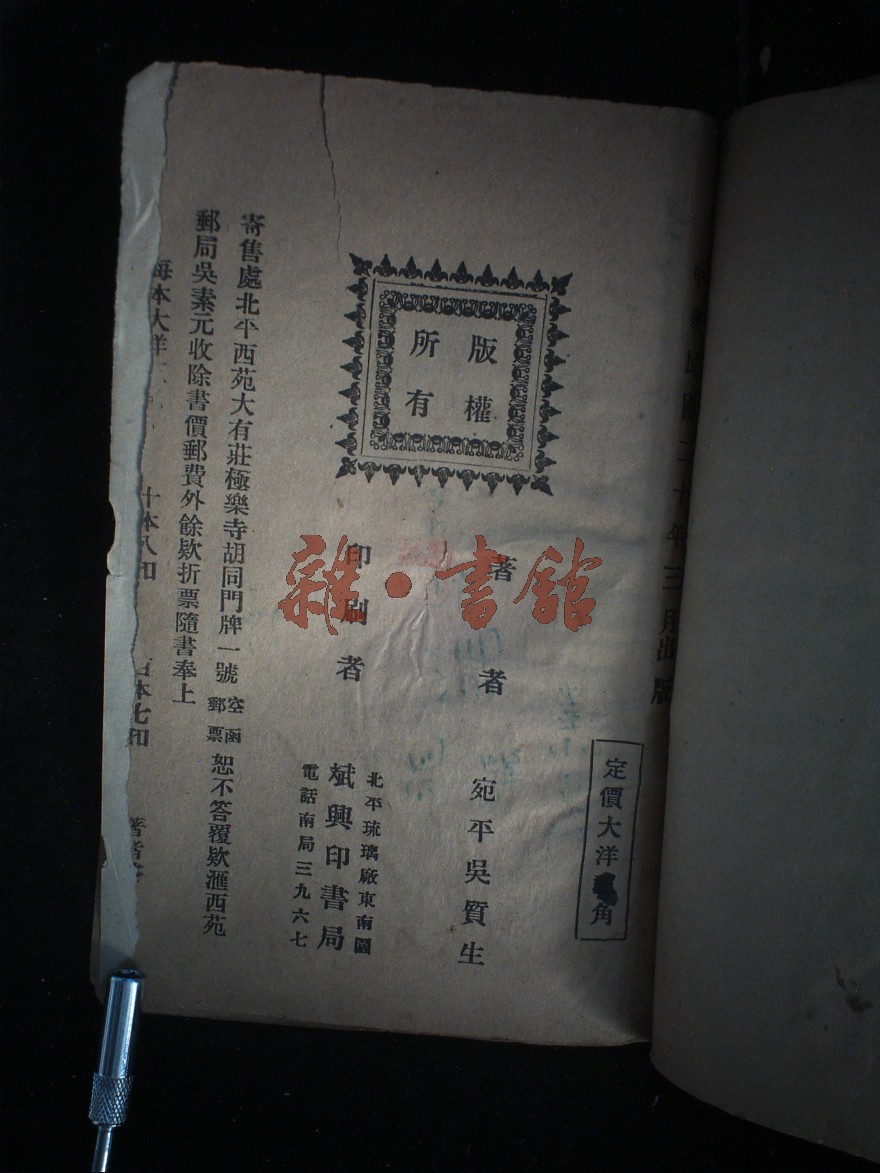 民國二十年三月出版
定價大洋角
版權
所有
著者
宛平吳質生
印刷者
北平琉璃廠東南園
斌興印書局
電話南局三九六七
寄售處北平西苑大有莊極樂寺胡同門牌一號空函郵票恕不答覆欵滙西苑
郵局吳素元收除書價郵費外餘欵折票隨書奉上
每本大洋
十本八扣
百本七扣
雜·書館